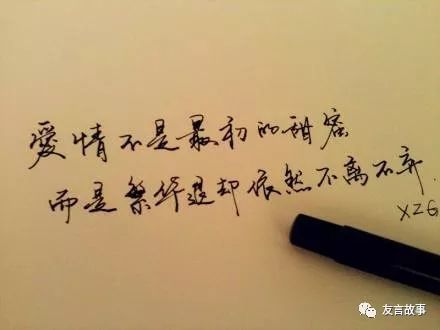 爱情不是最初的甜蜜
而是繁华退却依然不离不弃.
XZG
友言故事